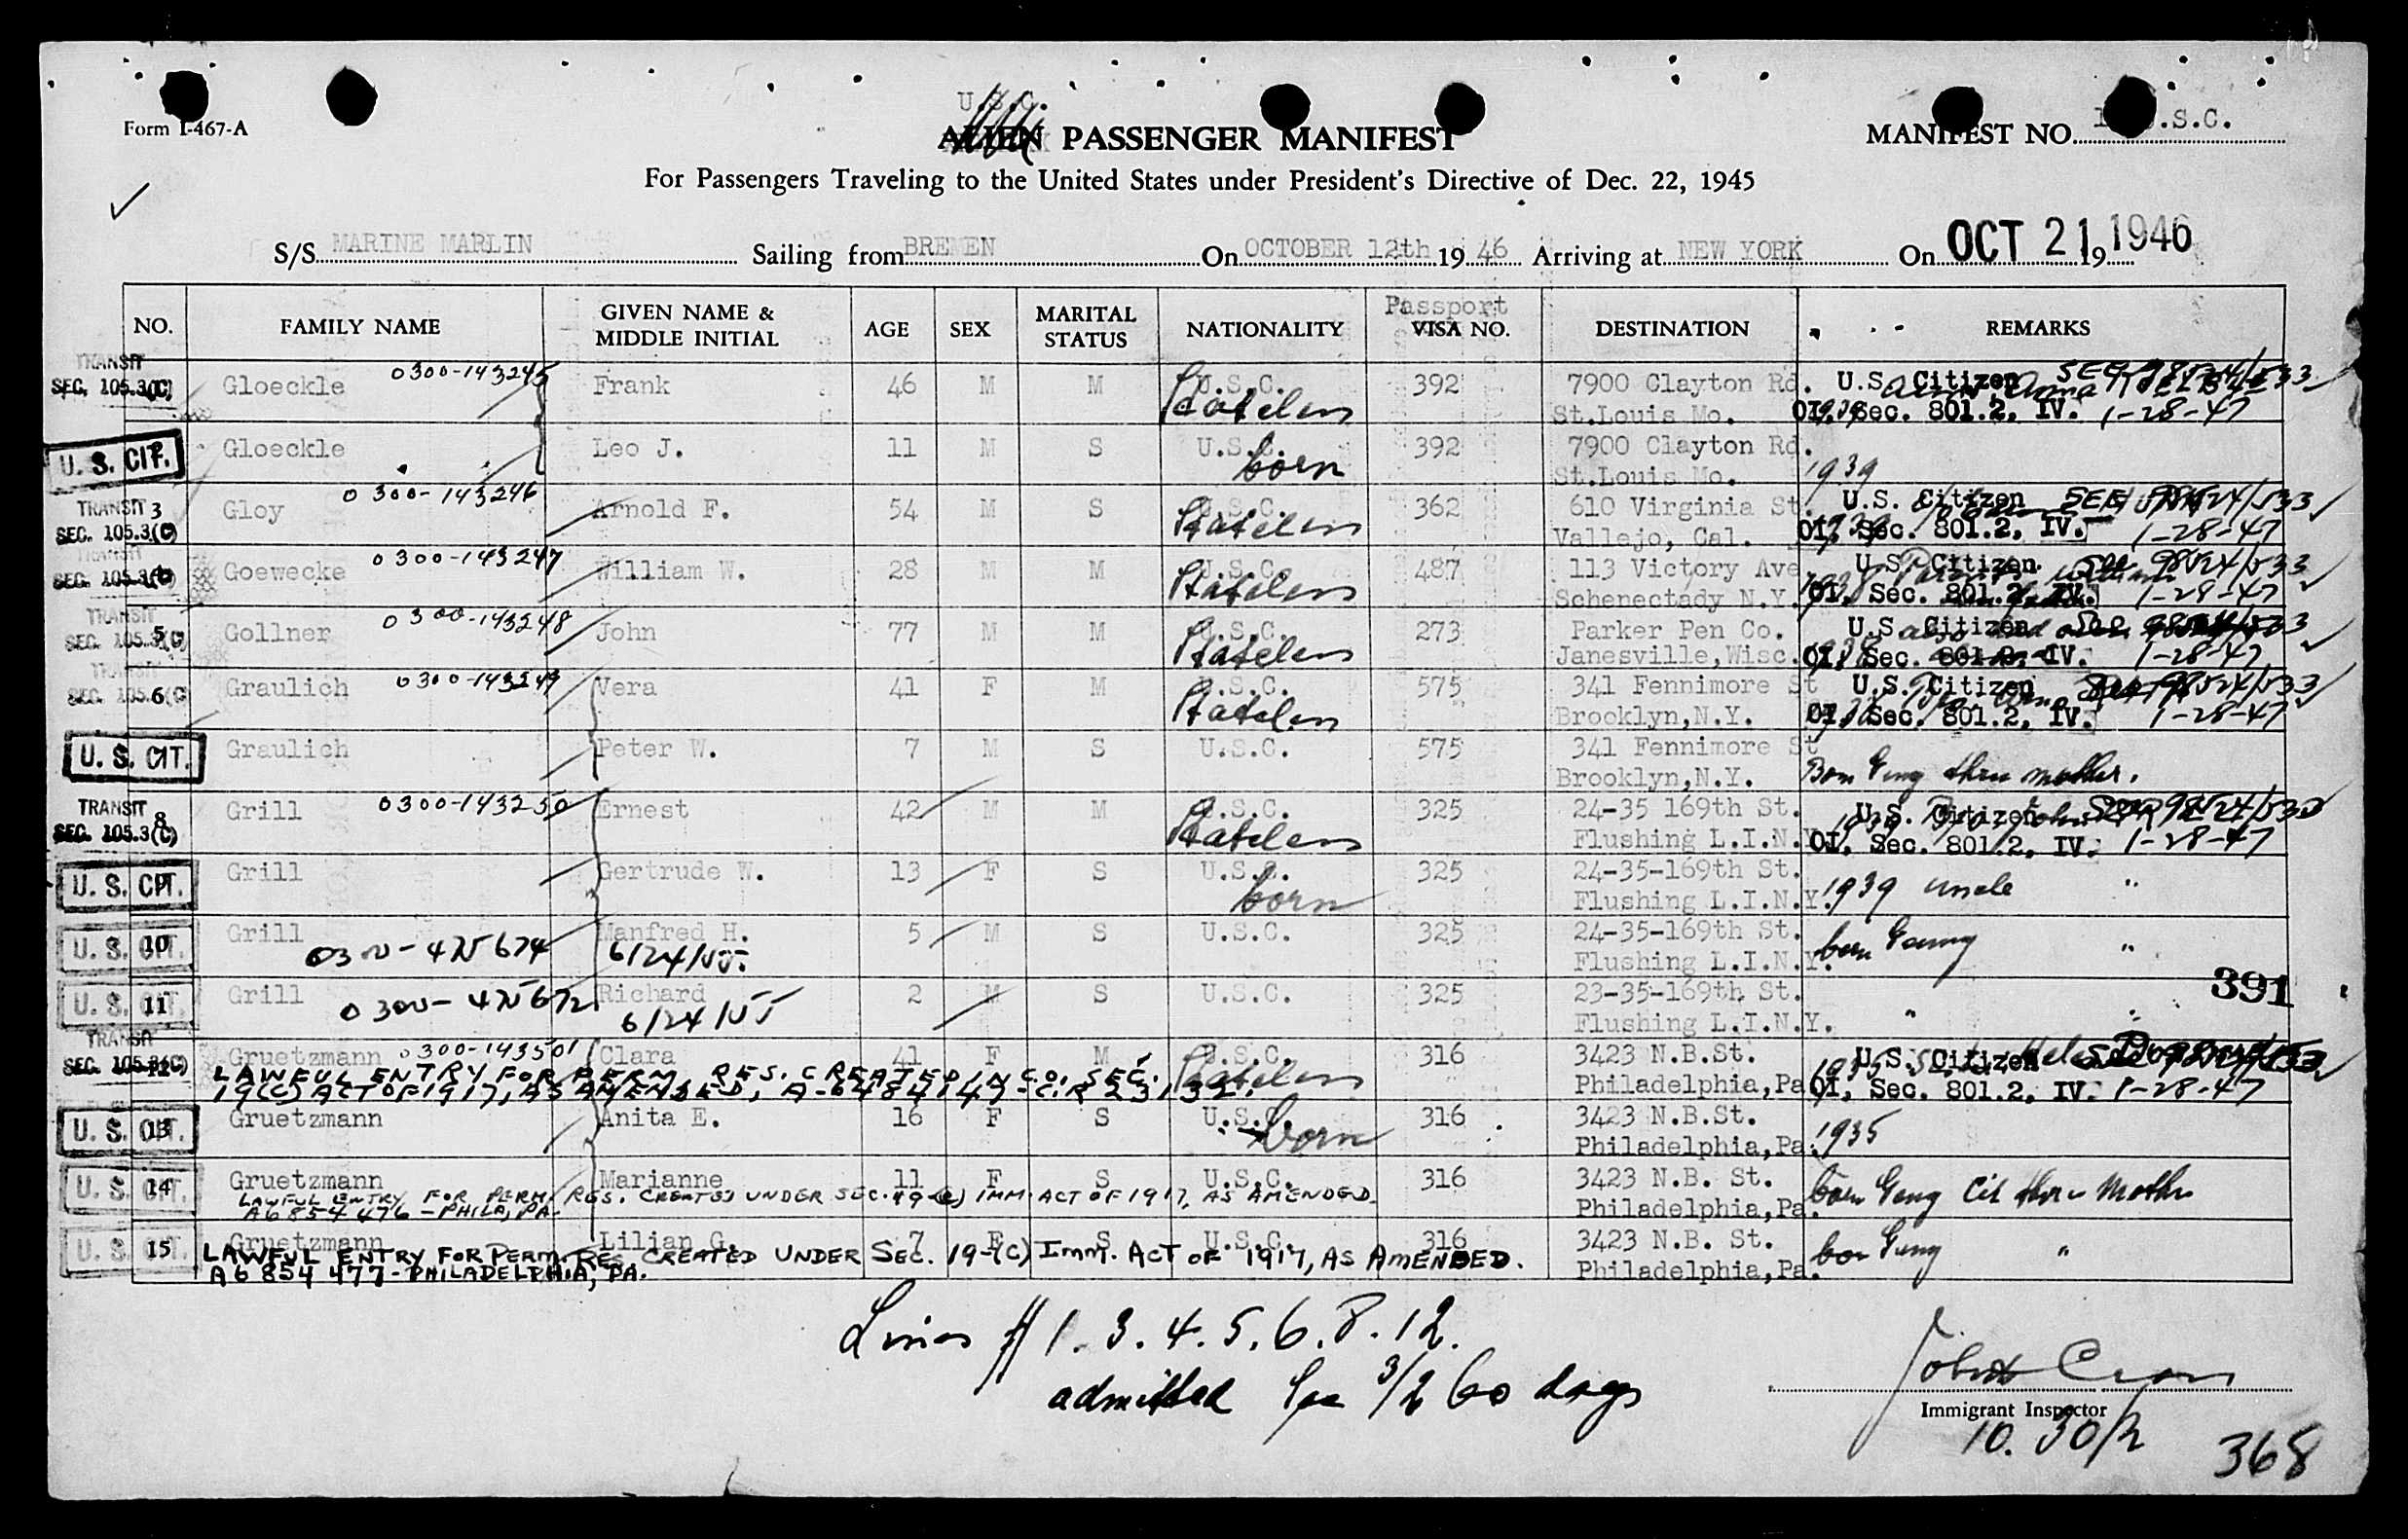 U.S.C.
Form I-467-A
ALIEN PASSENGER MANIFEST
MANIFEST NO. .S.C.
For Passengers Traveling to the United States under President's Directive of Dec. 22, 1945
S/S MARINE MARLIN Sailing from BREMEN On OCTOBER 12th 19 46 Arriving at NEW YORK On OCT 21 1946 19
Passport
NO. FAMILY NAME GIVEN NAME & MIDDLE INITIAL AGE SEX MARITAL STATUS NATIONALITY VISA NO. DESTINATION REMARKS
TRANSIT
SEC. 105.3(C) Gloeckle 0300-143245 Frank 46 M M U.S.C. 392 7900 Clayton Rd. U.S. Citizen
Stateless St.Louis Mo. OI. Sec. 801.2, IV. 1-28-47
U.S. CIT. Gloeckle Leo J. 11 M S U.S.C. 392 7900 Clayton Rd.
born St.Louis Mo. 1939
TRANSIT 3 Gloy 0300-143246 Arnold F. 54 M S U.S.C. 362 610 Virginia St. U.S. Citizen SEE 98524/533
SEC. 105.3(C) Stateless Vallejo, Cal. OI. Sec. 801.2, IV. 1-28-47
TRANSIT
SEC. 105.3(C) Goewecke 0300-143247 William W. 28 M M U.S.C. 487 113 Victory Ave U.S. Citizen See 98524/533
Stateless Schenectady N.Y. OI. Sec. 801.2, IV. 1-28-47
TRANSIT
SEC. 105.3(C) 5 Gollner 0300-143248 John 77 M M U.S.C. 273 Parker Pen Co. U.S. Citizen
Stateless Janesville,Wisc. OI. Sec. 801.2, IV. 1-28-47
TRANSIT
SEC. 105.3(C) 6 Graulich 0300-143249 Vera 41 F M U.S.C. 575 341 Fennimore St U.S. Citizen 98524/533
Stateless Brooklyn,N.Y. OI. Sec. 801.2, IV. 1-28-47
U.S. CIT. 7 Graulich Peter W. 7 M S U.S.C. 575 341 Fennimore St
Brooklyn,N.Y. Born Gmny thru mother.
TRANSIT 8 Grill 0300-143250 Ernest 42 M M U.S.C. 325 24-35 169th St. U.S. Citizen 98524/533
SEC. 105.3(C) Stateless Flushing L.I.N.Y. OI. Sec. 801.2, IV. 1-28-47
U.S. CIT. 9 Grill Gertrude W. 13 F S U.S.C. 325 24-35-169th St.
born Flushing L.I.N.Y. 1939 uncle "
U.S. CIT. 10 Grill Manfred H. 5 M S U.S.C. 325 24-35-169th St.
6/24/55 Flushing L.I.N.Y. born "
U.S. CIT. 11 Grill Richard 2 M S U.S.C. 325 23-35-169th St. 391
6/24/55 Flushing L.I.N.Y. " "
TRANSIT
SEC. 105.3(C) 12 Gruetzmann 0300-143501 Clara 41 F M U.S.C. 316 3423 N.B.St. U.S. Citizen
LAWFUL ENTRY FOR PERM. RES. CREATED IN C.O. SEC. Stateless
19(C) ACT OF 1917, AS AMENDED, A-6484147-C.R 23132. Philadelphia,Pa. OI, Sec. 801.2, IV. 1-28-47
U.S. CIT. 13 Gruetzmann Anita E. 16 F S U.S.C. 316 3423 N.B.St.
born Philadelphia,Pa. 1935
U.S. CIT. 14 Gruetzmann Marianne 11 F S U.S.C. 316 3423 N.B. St. born Cit thru Mother
LAWFUL ENTRY FOR PERM. RES. CREATED UNDER SEC. 19-(C) IMM. ACT OF 1917, AS AMENDED.
A6 854 476 - PHILA, PA. Philadelphia,Pa.
U.S. CIT. 15 Gruetzmann Lilian G. 7 F S U.S.C. 316 3423 N.B. St. "
LAWFUL ENTRY FOR PERM. RES CREATED UNDER SEC. 19-(C) IMM. ACT OF 1917, AS AMENDED.
A6 854 477 - PHILADELPHIA, PA. Philadelphia,Pa.
Lines # 1. 3. 4. 5. 6. 8. 12.
admitted Sec 3/2 60 days
Immigrant Inspector
10. 30/2
368